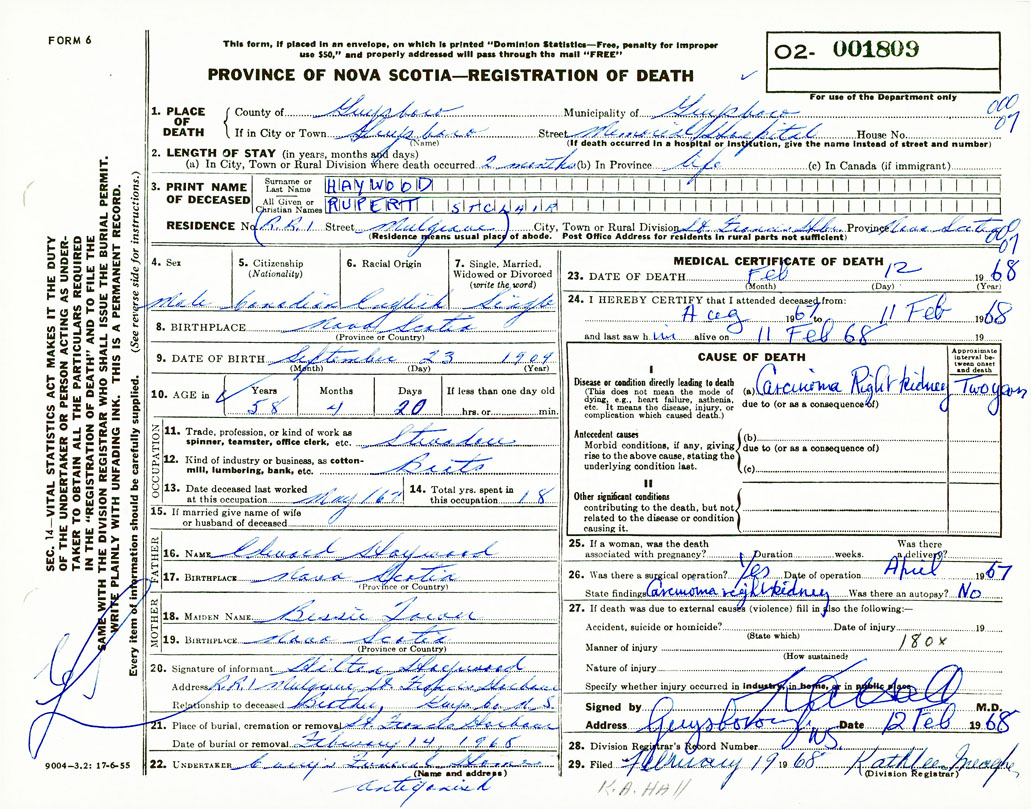 FORM 6
This form, if placed in an envelope, on which is printed "Dominion Statistics—Free, penalty for improper
use $50," and properly addressed will pass through the mail "FREE"
PROVINCE OF NOVA SCOTIA—REGISTRATION OF DEATH
02- 001809
For use of the Department only
1. PLACE OF DEATH County of Guysboro Municipality of Guysboro
If in City or Town Guysboro Street Memorial Hospital House No.
(Name) (If death occurred in a hospital or institution, give the name instead of street and number)
2. LENGTH OF STAY (in years, months and days)
(a) In City, Town or Rural Division where death occurred 2 months (b) In Province life (c) In Canada (if immigrant)
3. PRINT NAME OF DECEASED Surname or Last Name HAYWOOD
All Given or Christian Names RUPERT STCLAIR
RESIDENCE No. R.R.1 Street Mulgrave City, Town or Rural Division St. Francis Hbr Province Nova Scotia
(Residence means usual place of abode. Post Office Address for residents in rural parts not sufficient)
4. Sex 5. Citizenship (Nationality) 6. Racial Origin 7. Single, Married, Widowed or Divorced (write the word)
Male Canadian English Single
8. BIRTHPLACE Nova Scotia
(Province or Country)
9. DATE OF BIRTH September 23 1909
(Month) (Day) (Year)
10. AGE in Years Months Days If less than one day old
58 4 20 hrs. or min.
OCCUPATION
11. Trade, profession, or kind of work as spinner, teamster, office clerk, etc. Stevedore
12. Kind of industry or business, as cotton-mill, lumbering, bank, etc. Boats
13. Date deceased last worked at this occupation May 1967
14. Total yrs. spent in this occupation 18
15. If married give name of wife or husband of deceased
FATHER
16. NAME Edward Haywood
17. BIRTHPLACE Nova Scotia
(Province or Country)
MOTHER
18. MAIDEN NAME Bessie
19. BIRTHPLACE Nova Scotia
(Province or Country)
20. Signature of informant Hilton Haywood
Address R.R.1 Mulgrave St. Francis Harbour
Relationship to deceased Brother Guysbo. N.S.
21. Place of burial, cremation or removal St. Francis Harbour
Date of burial or removal February 14 1968
22. UNDERTAKER Funeral Home
(Name and address)
Antigonish
MEDICAL CERTIFICATE OF DEATH
23. DATE OF DEATH Feb 12 1968
(Month) (Day) (Year)
24. I HEREBY CERTIFY that I attended deceased from:
Aug 1967 to 11 Feb 1968
and last saw him alive on 11 Feb 68
CAUSE OF DEATH
Approximate interval between onset and death
I
Disease or condition directly leading to death
(This does not mean the mode of dying, e.g., heart failure, asthenia, etc. It means the disease, injury, or complication which caused death.)
(a) Carcinoma Right kidney Two years
due to (or as a consequence of)
Antecedent causes
Morbid conditions, if any, giving rise to the above cause, stating the underlying condition last.
(b)
due to (or as a consequence of)
(c)
II
Other significant conditions
contributing to the death, but not related to the disease or condition causing it.
25. If a woman, was the death associated with pregnancy? Duration weeks. Was there a delivery?
26. Was there a surgical operation? Yes Date of operation April 1967
State findings Carcinoma right kidney Was there an autopsy? No
27. If death was due to external causes (violence) fill in also the following:—
Accident, suicide or homicide? Date of injury 19
(State which)
Manner of injury 180x
(How sustained)
Nature of injury
Specify whether injury occurred in industry, in home, or in public place
Signed by M.D.
Address Guysborough NS. Date 12 Feb 1968
28. Division Registrar's Record Number
29. Filed February 19 1968 Kathleen Meagher
(Division Registrar)
K.A. HAll
SEC. 14—VITAL STATISTICS ACT MAKES IT THE DUTY
OF THE UNDERTAKER OR PERSON ACTING AS UNDER-
TAKER TO OBTAIN ALL THE PARTICULARS REQUIRED
IN THE "REGISTRATION OF DEATH" AND TO FILE THE
SAME WITH THE DIVISION REGISTRAR WHO SHALL ISSUE THE BURIAL PERMIT.
WRITE PLAINLY WITH UNFADING INK. THIS IS A PERMANENT RECORD.
Every item of information should be carefully supplied. (See reverse side for instructions.)
9004-3.2: 17-6-55